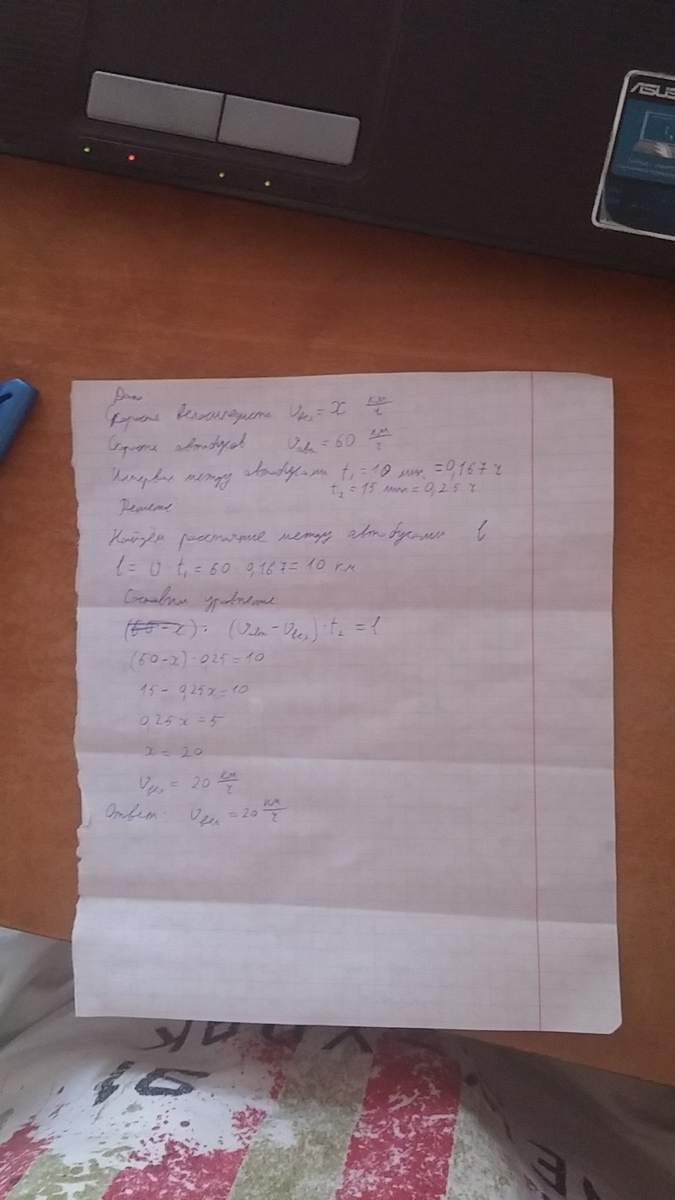 ASUS
Дано
Скорость велосипедиста Vвел = x км/ч
Скорость автобусов Vавт = 60 км/ч
Интервал между автобусами t₁ = 10 мин. = 0,167 ч
t₂ = 15 мин = 0,25 ч
Решение
Найдём расстояние между автобусами l
l = V · t₁ = 60 · 0,167 = 10 км
Составим уравнение
(60 - x) · (Vавт - Vвел) · t₂ = l
(60-x) · 0,25 = 10
15 - 0,25x = 10
0,25x = 5
x = 20
Vвел = 20 км/ч
Ответ: Vвел = 20 км/ч